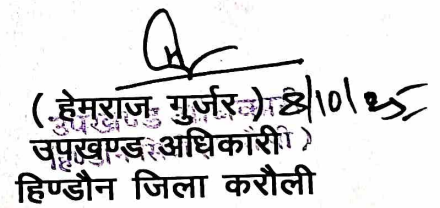 ( हेमराज गुर्जर ) 8/10/25
उपखण्ड अधिकारी
हिण्डौन जिला करौली